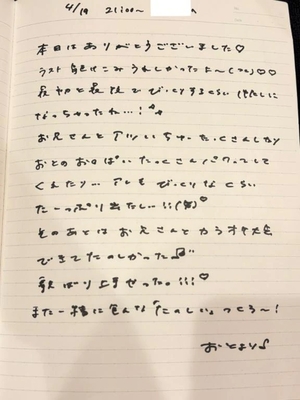 4/19 21:00〜
本日はありがとうございました♡
ラスト うれしかったよ〜 ♡♡
最初と最後でびっくりするくらい
なっちゃったね…!
お兄さんとアツいちゅーたくさんしたり
おとのおっぱいたっくさん
くれたり… アレもびっくりなくらい
たーっぷり出たし…!!
そのあとはお兄さんとカラオケ大会
できてたのしかった
歌ばり上手せった…!!!♡
また一緒に色んな「たのしい」つくろ〜!
おとより♪